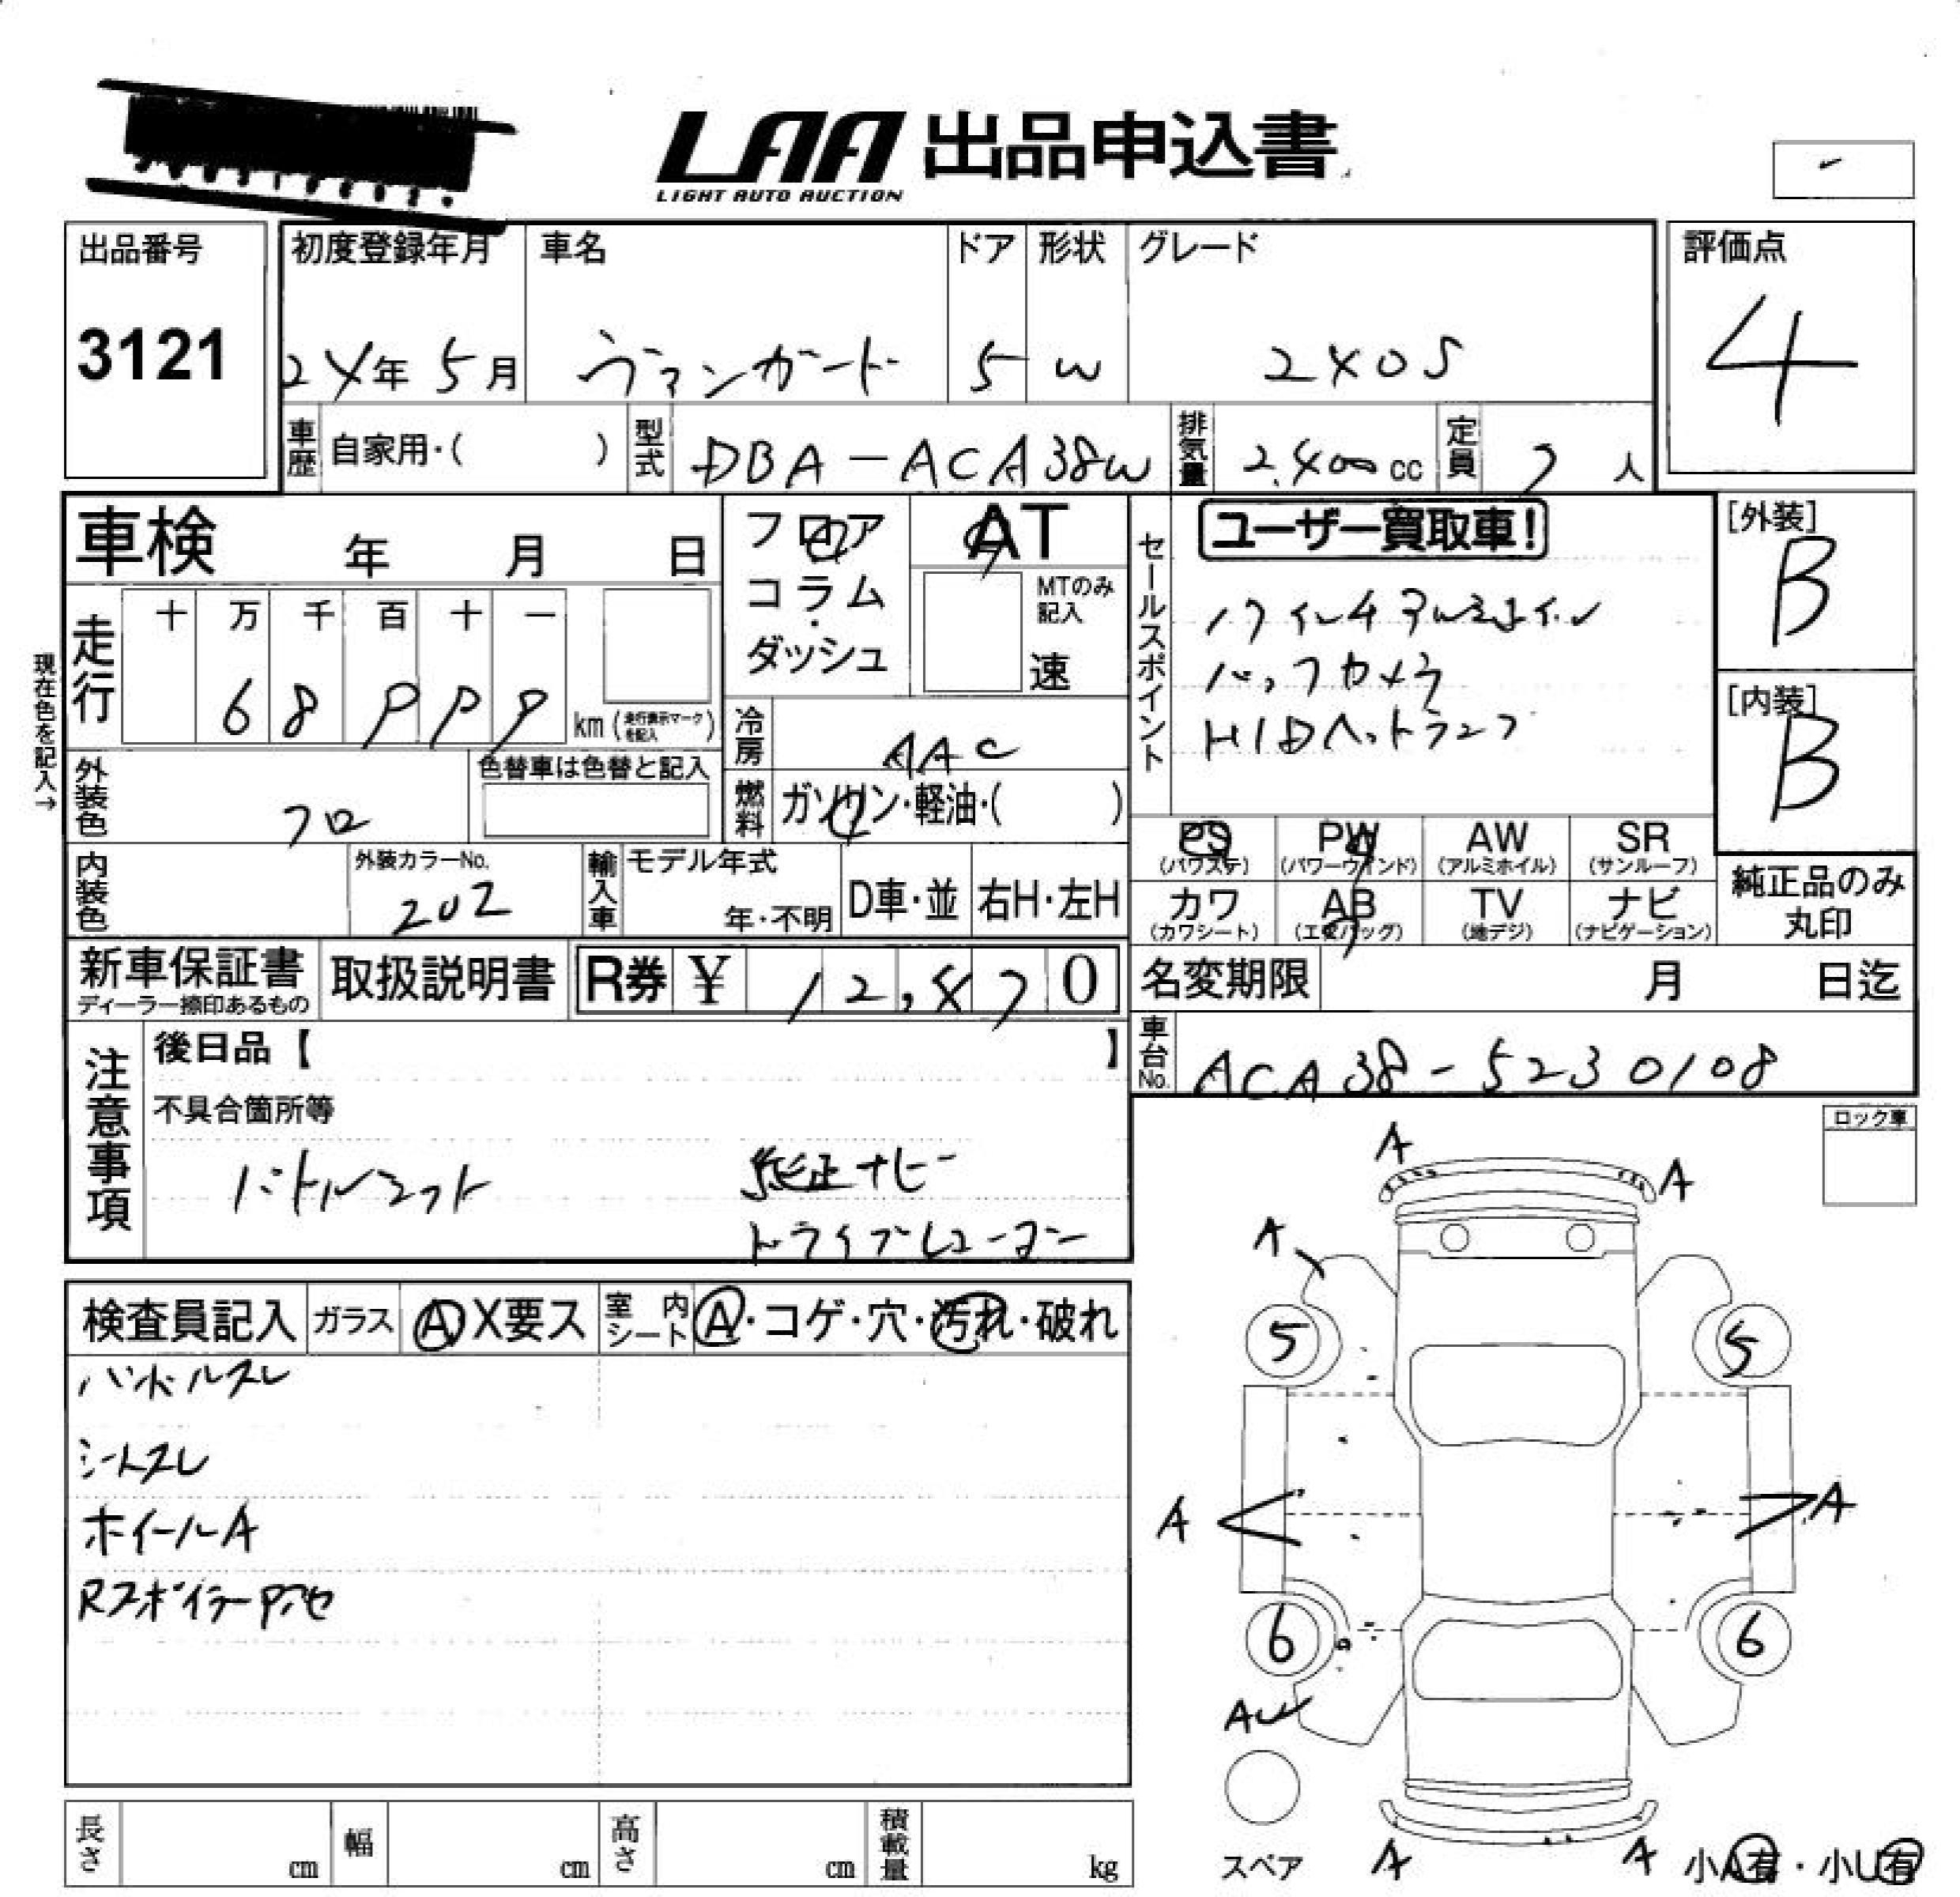 LAA 出品申込書
LIGHT AUTO AUCTION
出品番号
3121
初度登録年月
24年 5月
車名
ヴァンガード
ドア
5
形状
W
グレード
240S
評価点
4
車歴 自家用・( )
型式 DBA-ACA38W
排気量 2,400cc
定員 7人
車検 年 月 日
フロア
コラム・
ダッシュ
AT
MTのみ
記入
速
走行
十 万 千 百 十 一
68999 km (走行表示マークを記入)
現在色を記入→
冷房 AAC
燃料 ガソリン・軽油・( )
外装色 クロ
色替車は色替と記入
内装色
外装カラーNo.
202
輸入車
モデル年式
年・不明
D車・並
右H・左H
セールスポイント
ユーザー買取車!
17インチアルミホイール
バックカメラ
HIDヘッドランプ
[外装]
B
[内装]
B
PS
(パワステ)
PW
(パワーウインド)
AW
(アルミホイル)
SR
(サンルーフ)
カワ
(カワシート)
AB
(エアバッグ)
TV
(地デジ)
ナビ
(ナビゲーション)
純正品のみ
丸印
新車保証書
ディーラー捺印あるもの
取扱説明書
R券 ¥ 12,870
名変期限 月 日迄
車台No. ACA38-5230108
注意事項
後日品【 】
不具合箇所等
純正ナビ
ドライブレコーダー
ロック車
検査員記入
ガラス
A X要ス
室内シート
A・コゲ・穴・汚れ・破れ
ハンドルスレ
シートスレ
ホイールA
A
A
A
5
5
A
A
6
6
AU
スペア
A
A
小A有・小U有
長さ cm
幅 cm
高さ cm
積載量 kg